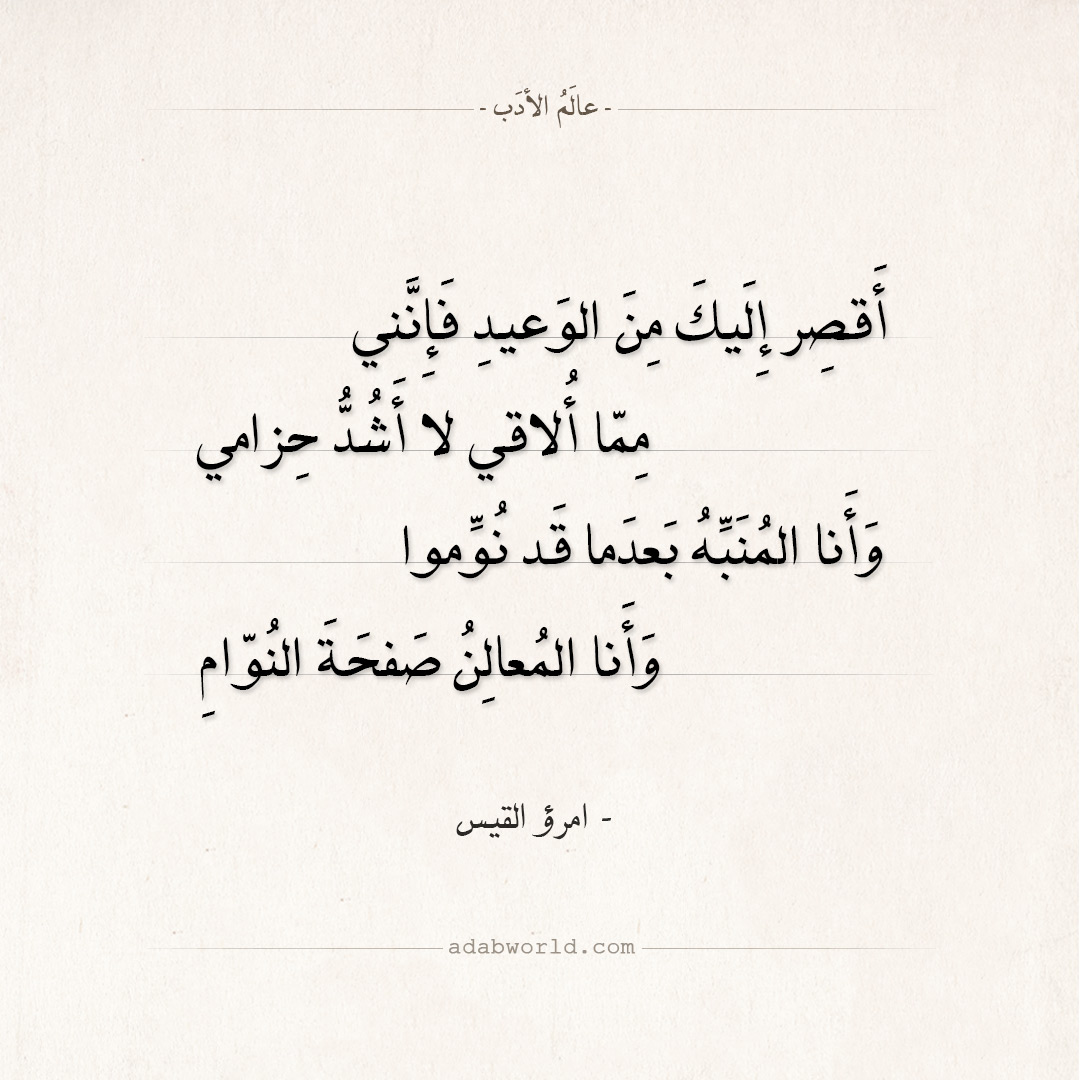 - عالَمُ الأدَب -
أَقصِر إِلَيكَ مِنَ الوَعيدِ فَإِنَّني
مِمّا أُلاقي لا أَشُدُّ حِزامي
وَأَنا المُنَبِّهُ بَعدَما قَد نُوِّموا
وَأَنا المُعالِنُ صَفحَةَ النُوّامِ
- امرؤ القيس
adabworld.com